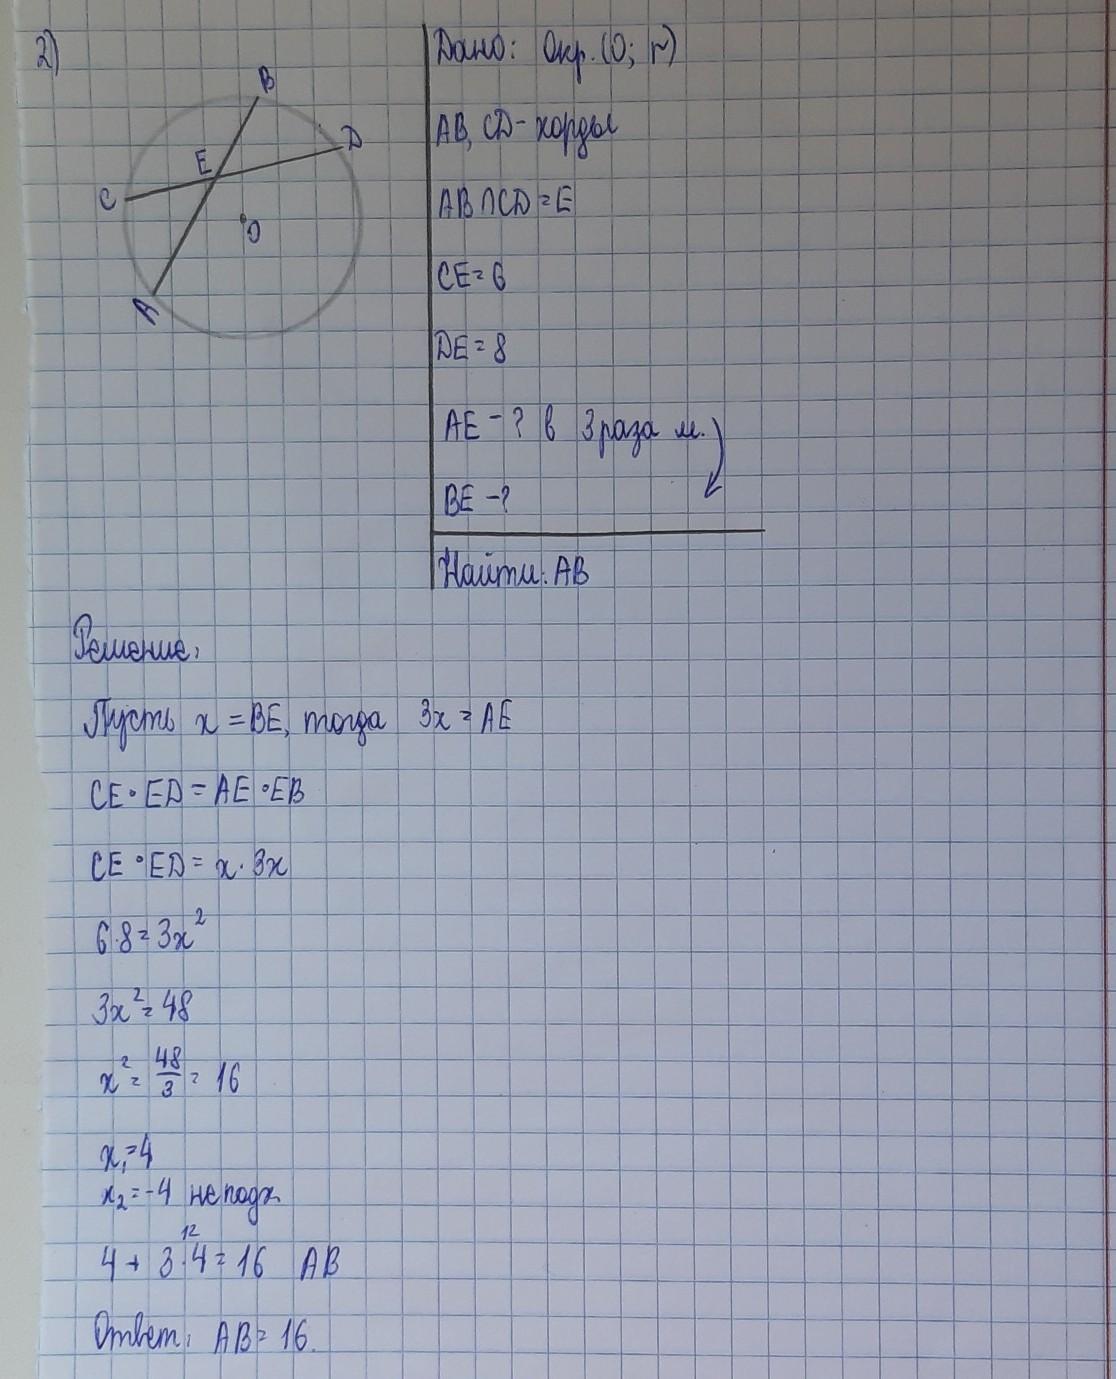 2)
B
D
E
C
O
A
Дано: Окр. (O; r)
AB, CD - хорды
AB ∩ CD = E
CE = 6
DE = 8
AE - ? в 3 раза м.
BE - ?
Найти: AB
Решение:
Пусть x = BE, тогда 3x = AE
CE · ED = AE · EB
CE · ED = x · 3x
6 · 8 = 3x²
3x² = 48
x² = 48/3 = 16
x₁ = 4
x₂ = -4 не подх.
12
4 + 3 · 4 = 16 AB
Ответ: AB = 16.